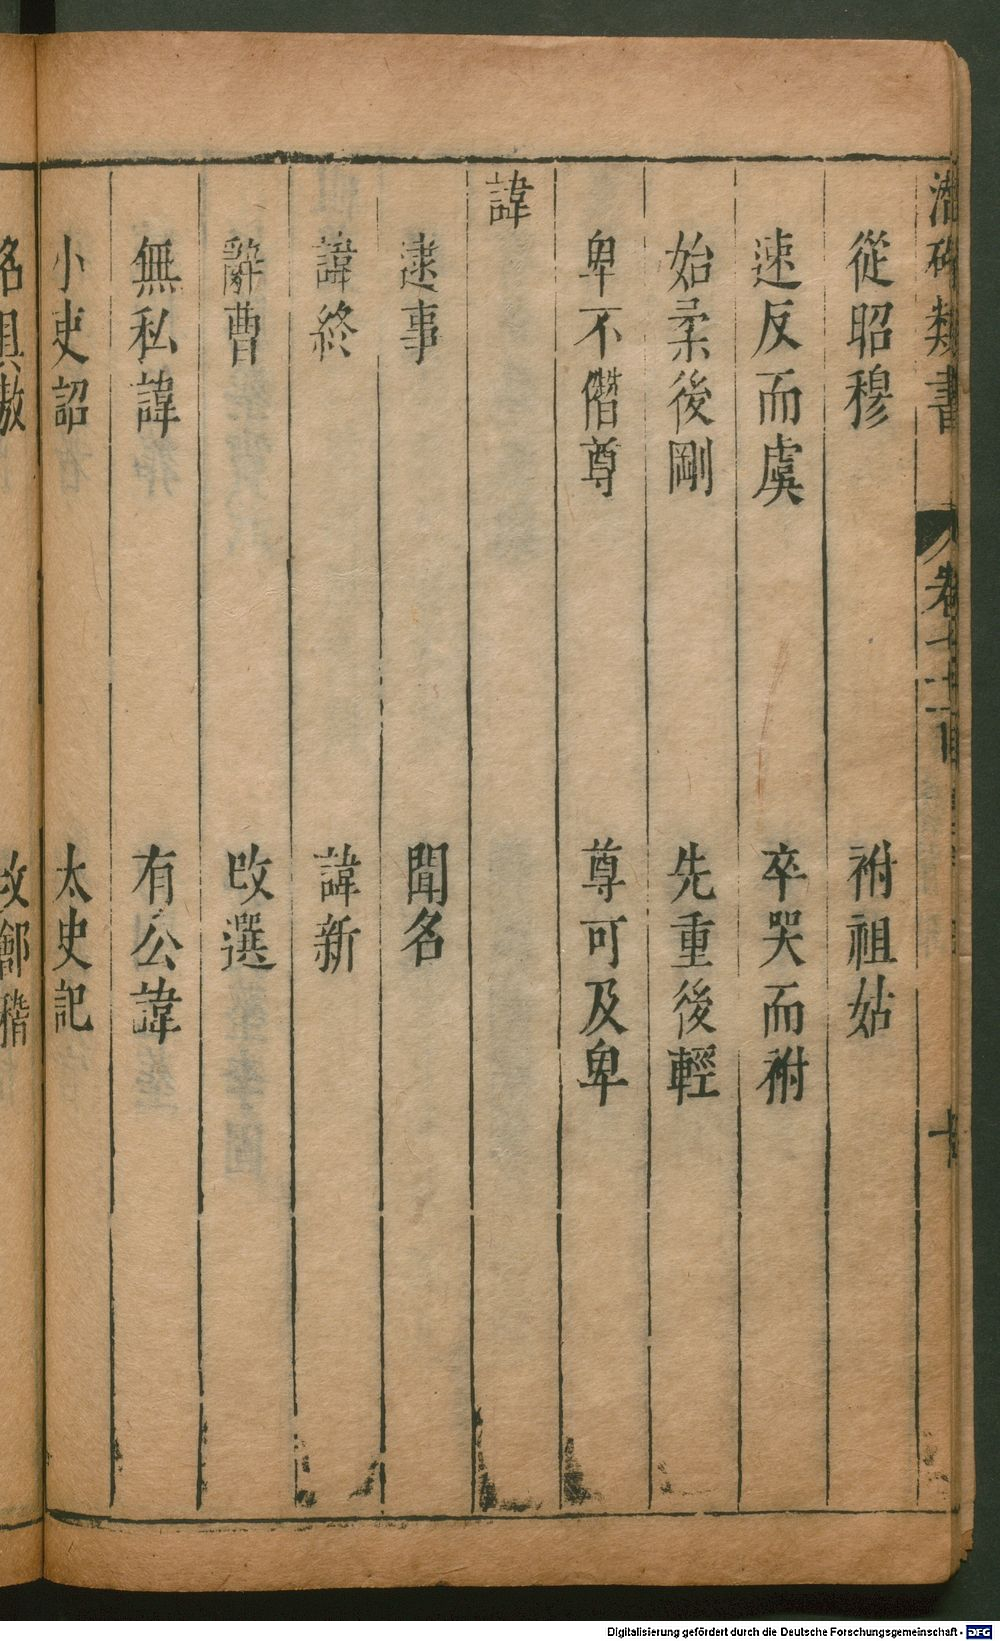 類書
卷七十
從昭穆 祔祖姑
速反而虞 卒哭而祔
始柔後剛 先重後輕
卑不僭尊 尊可及卑
諱
逮事 聞名
諱終 諱新
辭曹 改選
無私諱 有公諱
小史詔 太史記
Digitalisierung gefördert durch die Deutsche Forschungsgemeinschaft - DFG